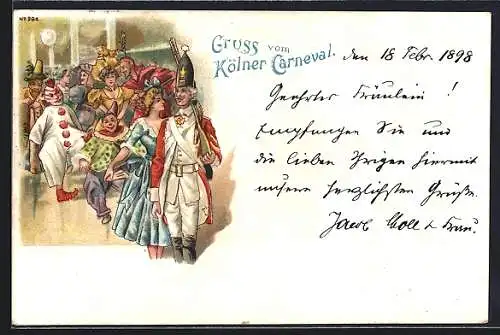 No 204
Gruss vom
Kölner Carneval.
den 18 Febr. 1898
Geehrtes Fräulein!
Empfangen Sie und
die lieben Ihrigen hiermit
unsere herzlichsten Grüße.
Jacob Moll & Frau.